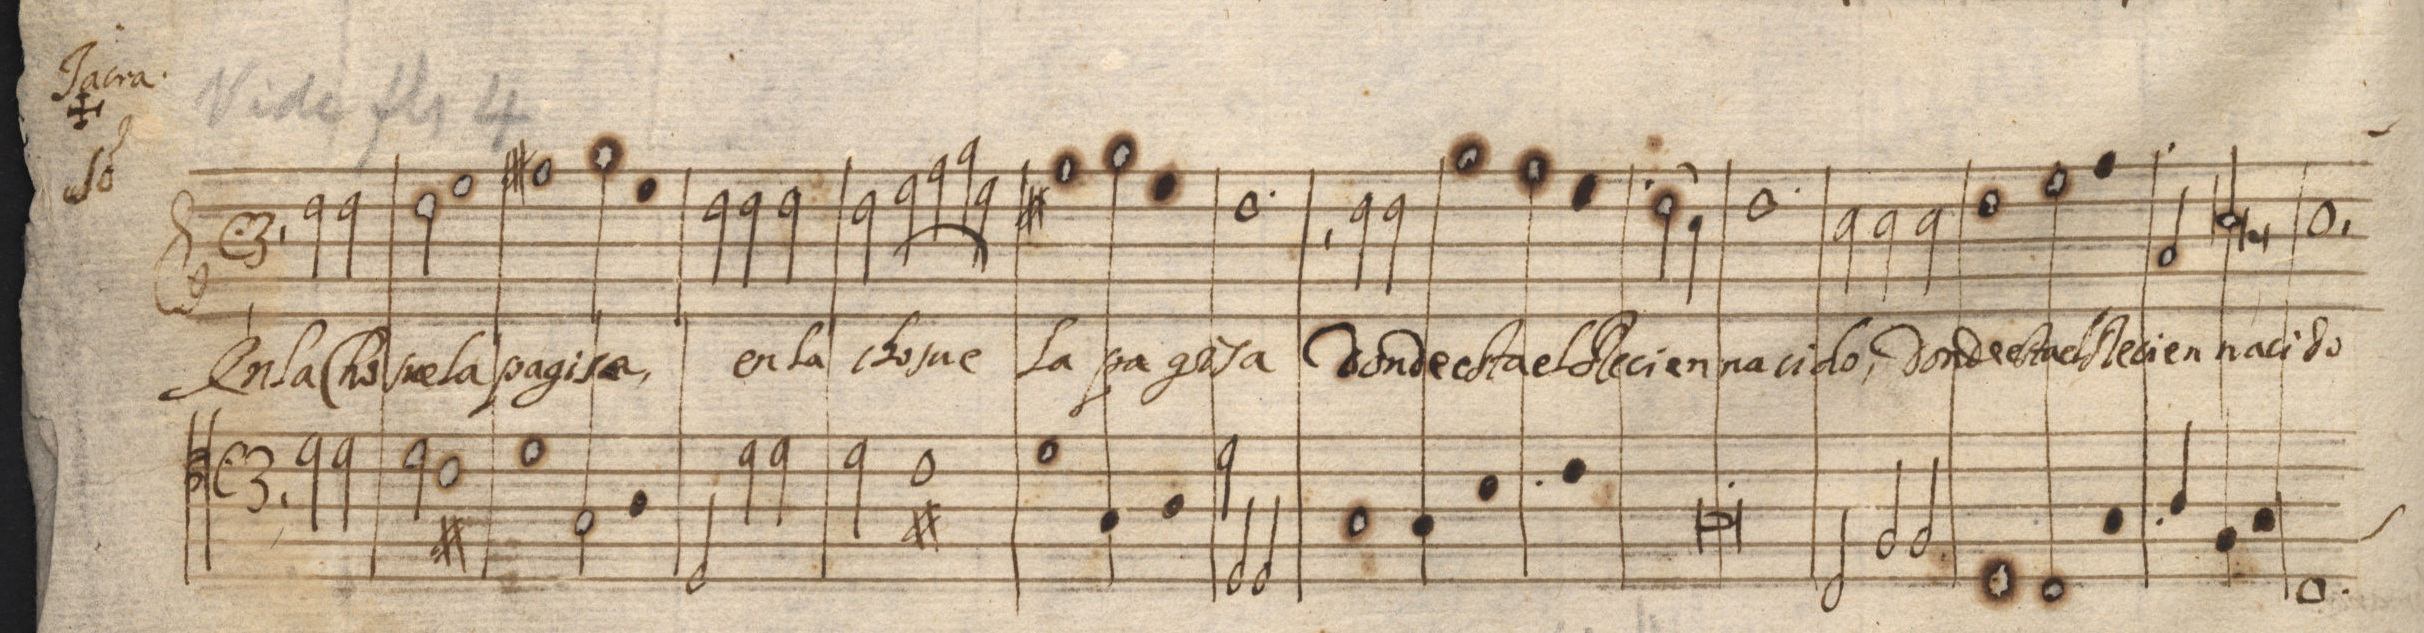 Jacra.
Vide fls 4
So
En la Chosuela pagisa, en la chosuela pagisa Donde esta el Reciennacido, Donde esta el Reciennacido